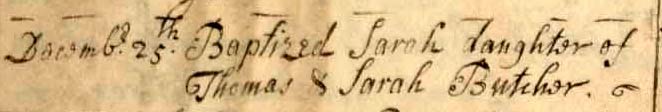 Decemb.r 25th. Baptized Sarah daughter of
Thomas & Sarah Butcher.